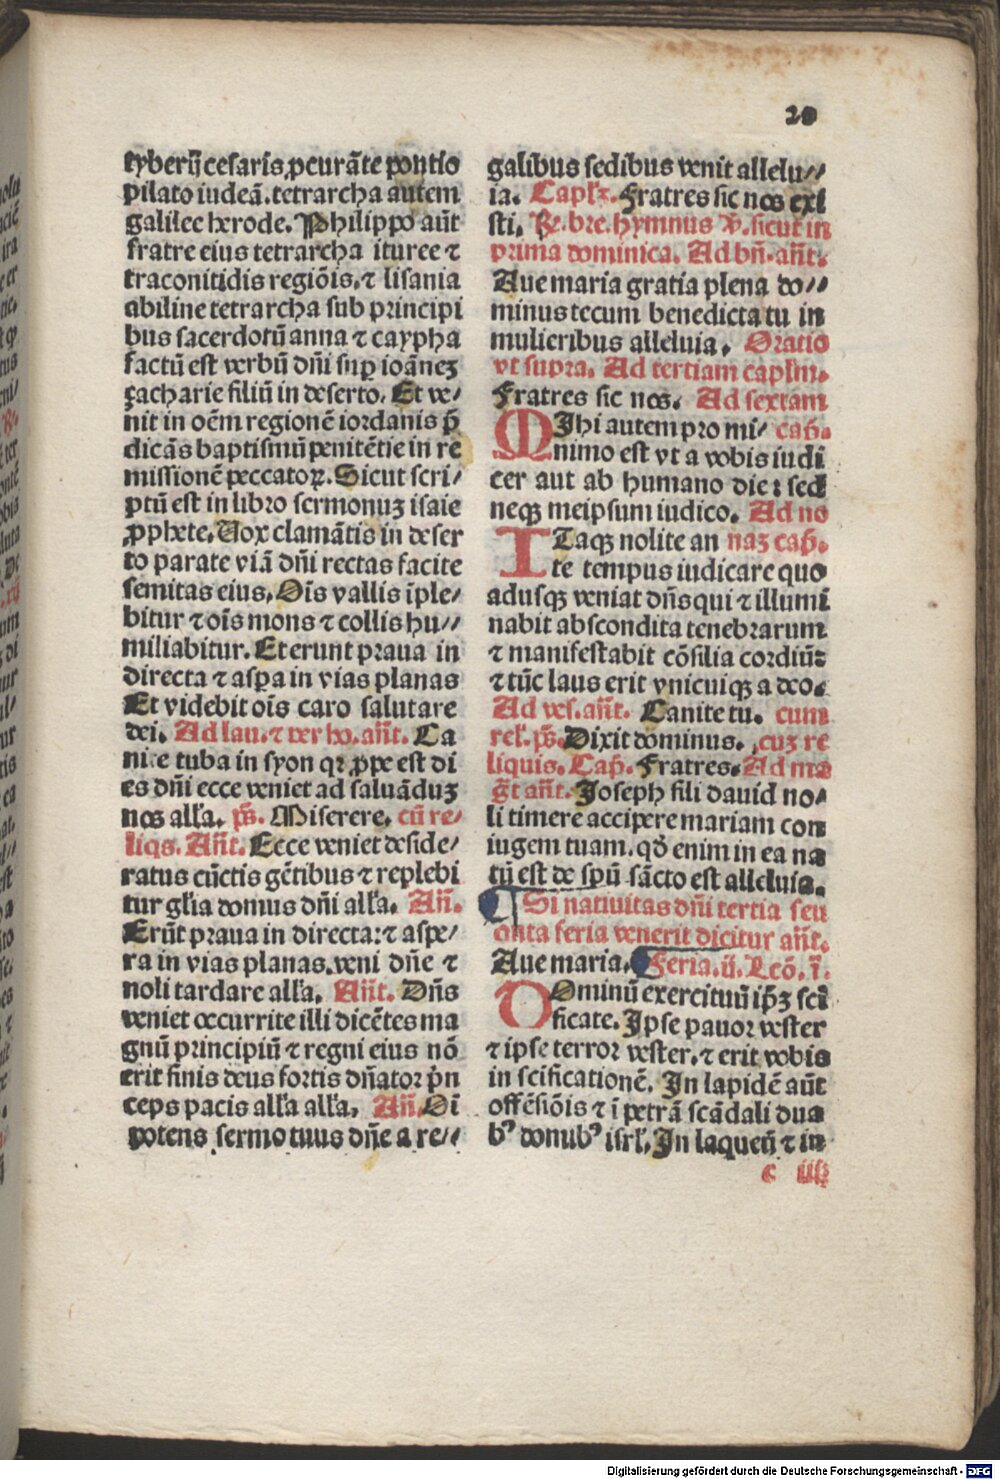 20
tyberij cesaris ꝓcurāte pontio
pilato iudeā. tetrarcha autem
galilee herode. Philippo aūt
fratre eius tetrarcha ituree ⁊
traconitidis regiōis. ⁊ lisania
abiline tetrarcha sub principi
bus sacerdotū anna ⁊ caypha
factū est verbū dn̄i suꝑ ioānez
zacharie filiū in deserto. Et ve⸗
nit in oēm regionē iordanis p̄
dicās baptismū penitētie in re
missionē peccatoꝝ. Sicut scri⸗
ptū est in libro sermonuz isaie
ꝓphete. Uox clamātis in deser
to parate viā dn̄i rectas facite
semitas eius. Oīs vallis īple⸗
bitur ⁊ oīs mons ⁊ collis hu⸗
miliabitur. Et erunt praua in
directa ⁊ asꝑa in vias planas
Et videbit oīs caro salutare
dei. Ad lau. ⁊ ꝑ ho. an̄t. Ca
nite tuba in syon qꝛ ꝓpe est di
es dn̄i ecce veniet ad saluāduz
nos alľa. ps̄. Miserere. cū re⸗
liqs. An̄t. Ecce veniet deside⸗
ratus cūctis gētibus ⁊ replebi
tur gľia domus dn̄i alľa. An̄.
Erūt praua in directa: ⁊ aspe⸗
ra in vias planas. veni dn̄e ⁊
noli tardare alľa. An̄t. Dn̄s
veniet occurrite illi dicētes ma
gnū principiū ⁊ regni eius nō
erit finis deus fortis dn̄ator p̄n
ceps pacis alľa alľa. An̄. Oī
potens sermo tuus dn̄e a re⸗
galibus sedibus venit allelu⸗
ia. Capľꝫ. Fratres sic nos exi
sti. ℟. bre. hymnus ℣. sicut in
prima dominica. Ad bn̄. an̄t.
Aue maria gratia plena do⸗
minus tecum benedicta tu in
mulieribus alleluia. Oratio
vt supra. Ad tertiam capľm.
Fratres sic nos. Ad sextam
MIhi autem pro mi⸗ cap̄.
nimo est vt a vobis iudi
cer aut ab humano die: sed
neqꝫ meipsum iudico. Ad no
ITaqꝫ nolite an naz cap̄.
te tempus iudicare quo
adusqꝫ veniat dn̄s qui ⁊ illumi
nabit abscondita tenebrarum
⁊ manifestabit cōsilia cordiū:
⁊ tūc laus erit vnicuiqꝫ a deo.
Ad ves. an̄t. Canite tu. cum
reľ. ps̄. Dixit dominus. cuz re
liquis. Cap̄. Fratres. Ad ma
ḡt an̄t. Joseph fili dauid no⸗
li timere accipere mariam con
iugem tuam. qđ enim in ea na
tū est de sp̄u sācto est alleluia.
¶ Si natiuitas dn̄i tertia seu
qnta feria venerit dicitur an̄t.
Aue maria. Feria. ij. Lcō. i.
DOminū exercituū ip̄ꝫ scī
ficate. Ipse pauor vester
⁊ ipse terror vester. ⁊ erit vobis
in scificationē. In lapidē aūt
offēsiōis ⁊ ī petrā scādali dua
bꝰ domibꝰ isrľ. In laqueū ⁊ in
c iiij
Digitalisierung gefördert durch die Deutsche Forschungsgemeinschaft - DFG